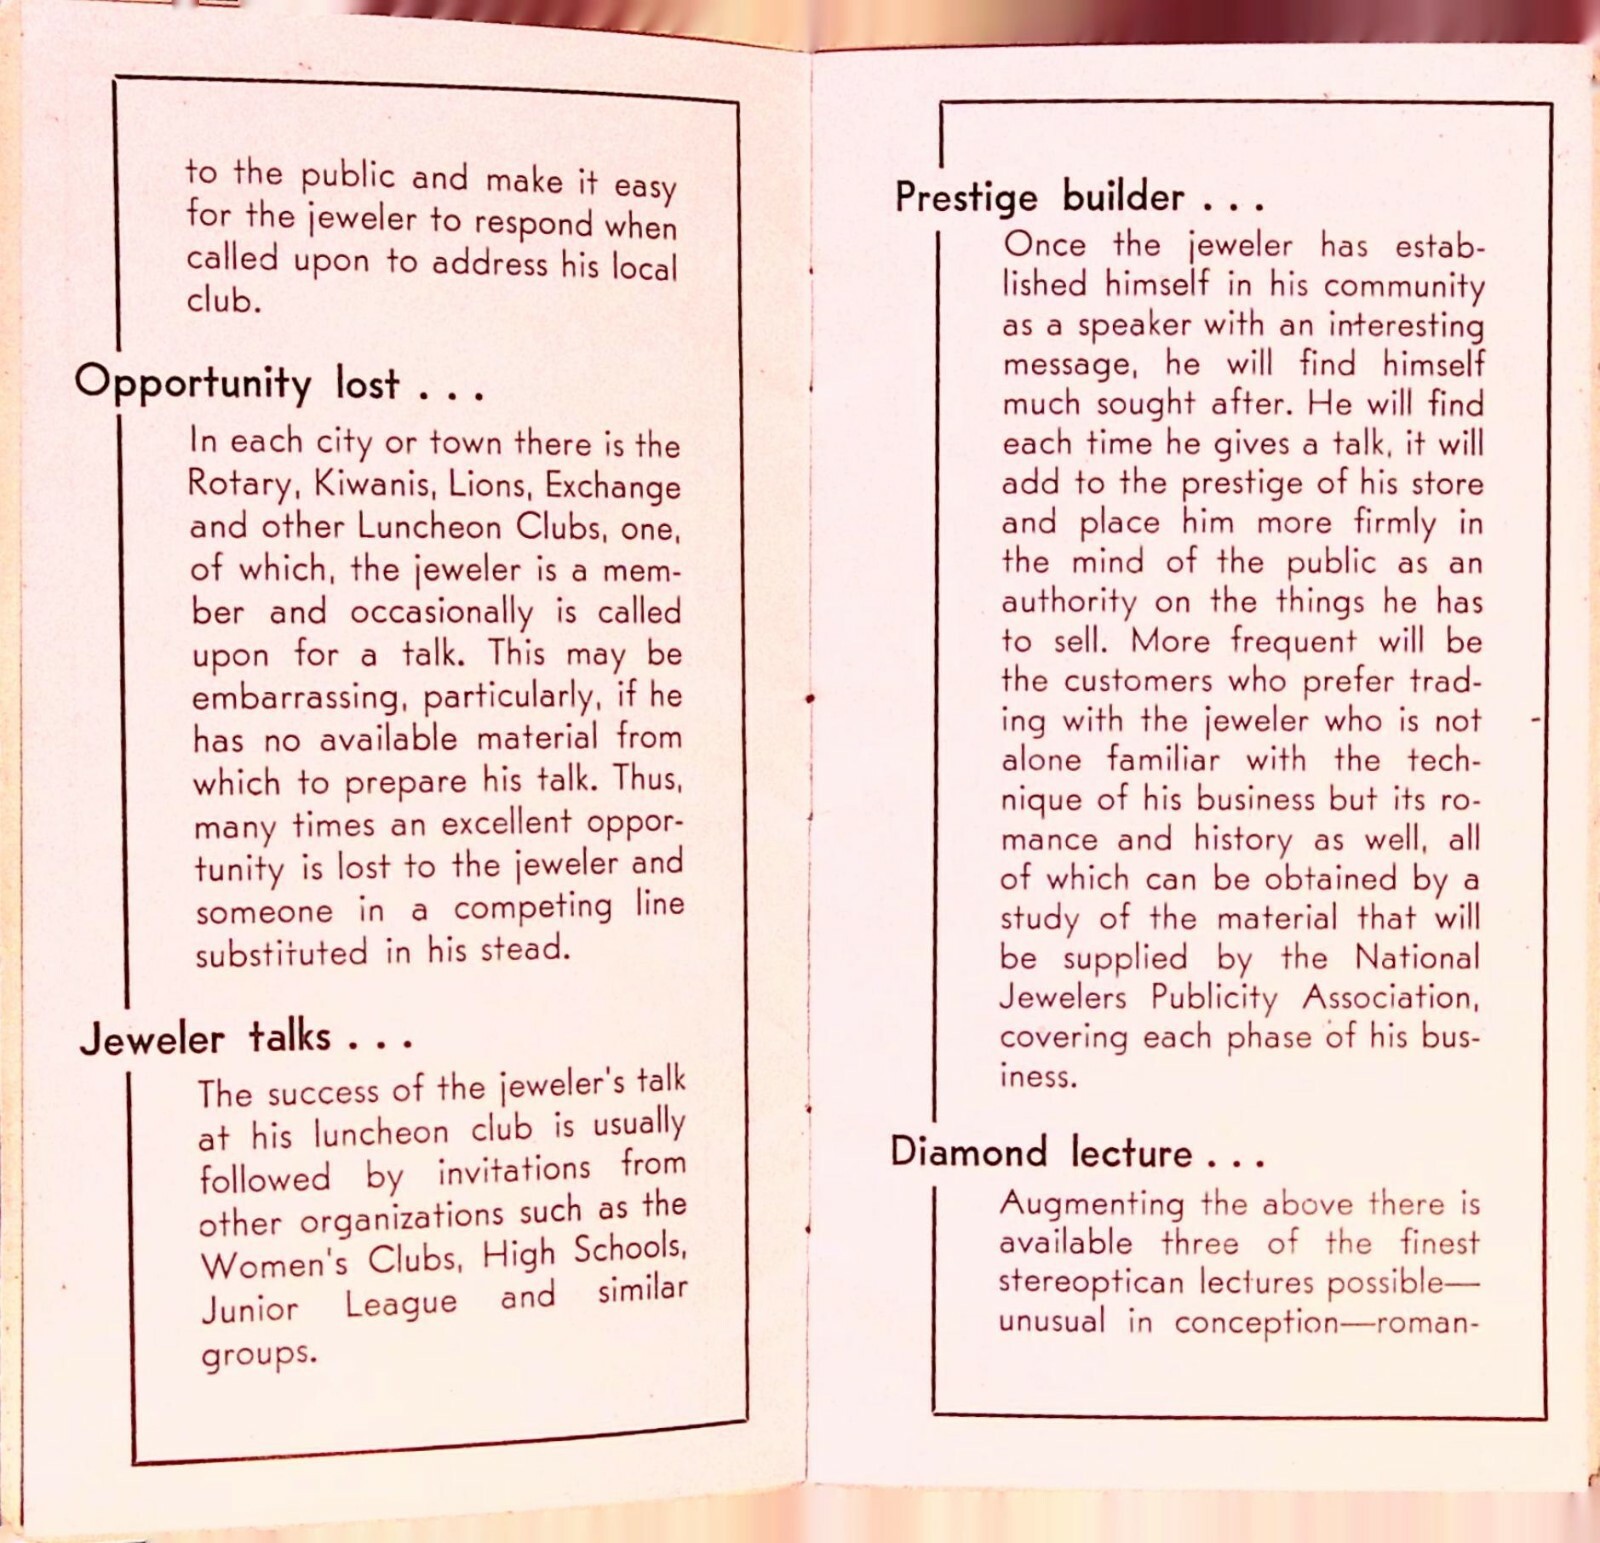 to the public and make it easy
for the jeweler to respond when
called upon to address his local
club.
Opportunity lost . . .
In each city or town there is the
Rotary, Kiwanis, Lions, Exchange
and other Luncheon Clubs, one,
of which, the jeweler is a mem-
ber and occasionally is called
upon for a talk. This may be
embarrassing, particularly, if he
has no available material from
which to prepare his talk. Thus,
many times an excellent oppor-
tunity is lost to the jeweler and
someone in a competing line
substituted in his stead.
Jeweler talks . . .
The success of the jeweler's talk
at his luncheon club is usually
followed by invitations from
other organizations such as the
Women's Clubs, High Schools,
Junior League and similar
groups.
Prestige builder . . .
Once the jeweler has estab-
lished himself in his community
as a speaker with an interesting
message, he will find himself
much sought after. He will find
each time he gives a talk, it will
add to the prestige of his store
and place him more firmly in
the mind of the public as an
authority on the things he has
to sell. More frequent will be
the customers who prefer trad-
ing with the jeweler who is not
alone familiar with the tech-
nique of his business but its ro-
mance and history as well, all
of which can be obtained by a
study of the material that will
be supplied by the National
Jewelers Publicity Association,
covering each phase of his bus-
iness.
Diamond lecture . . .
Augmenting the above there is
available three of the finest
stereoptican lectures possible—
unusual in conception—roman-